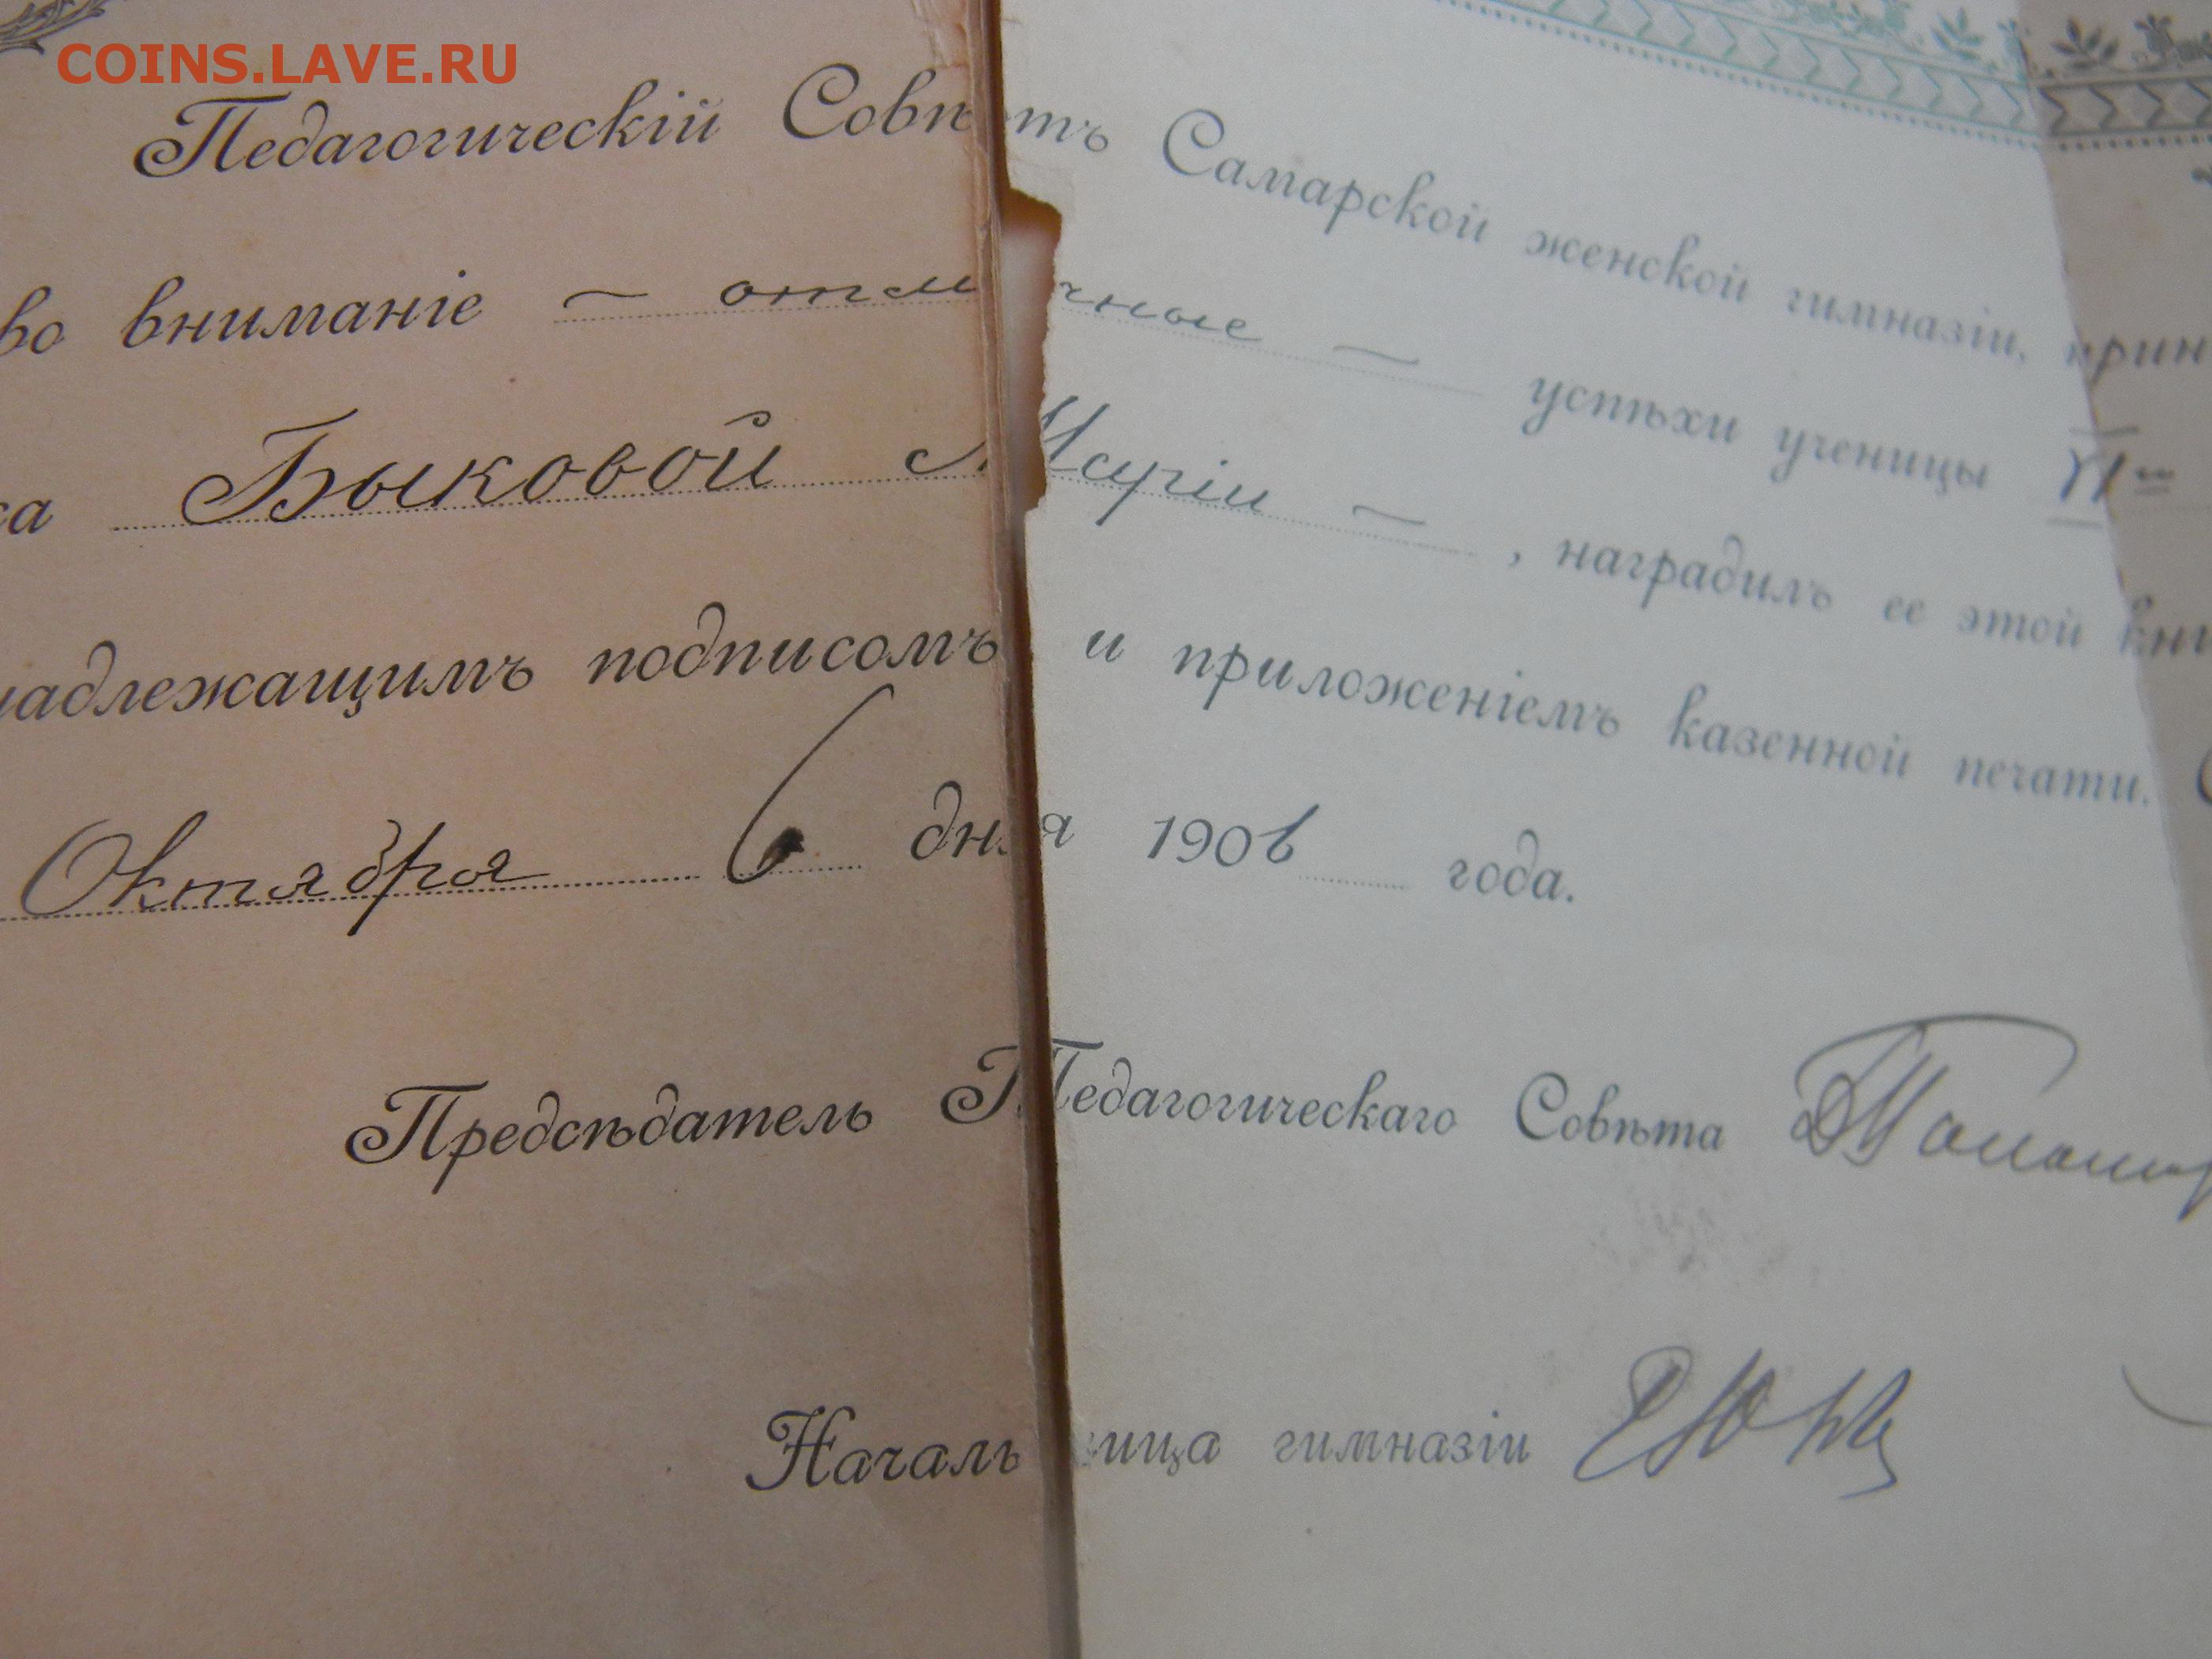 COINS.LAVE.RU
Педагогическій Совѣтъ Самарской женской гимназіи, прин
во вниманіе — отличные — успѣхи ученицы
са Быковой Маріи — , наградилъ ее этой кни
надлежащимъ подписомъ и приложеніемъ казенной печати.
Октября 6 дня 1906 года.
Предсѣдатель Педагогическаго Совѣта
Начальница гимназіи